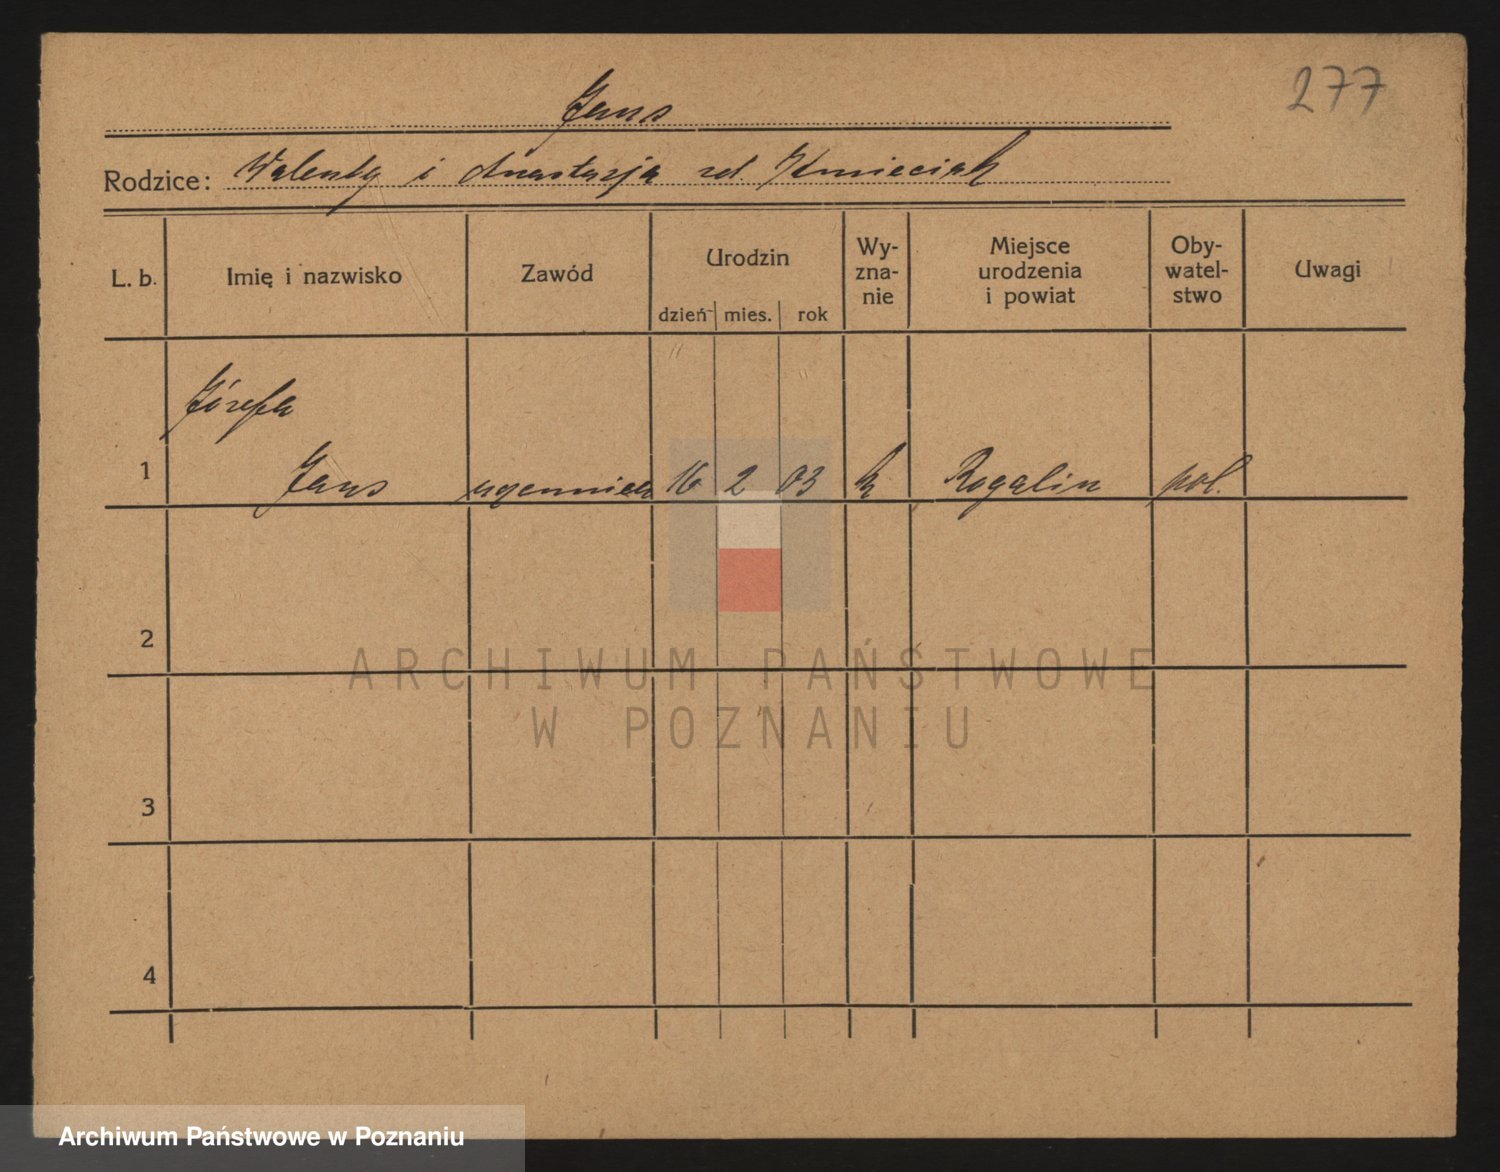 277
Jans
Rodzice: Walenty i Anastazja zd. Kmieciak
L. b. Imię i nazwisko Zawód Urodzin dzień mies. rok Wy-zna-nie Miejsce urodzenia i powiat Oby-watel-stwo Uwagi
Józefa
1 Jans uczennica 16 2 03 k Rogalin pol.
2
3
4
ARCHIWUM PAŃSTWOWE
W POZNANIU
Archiwum Państwowe w Poznaniu